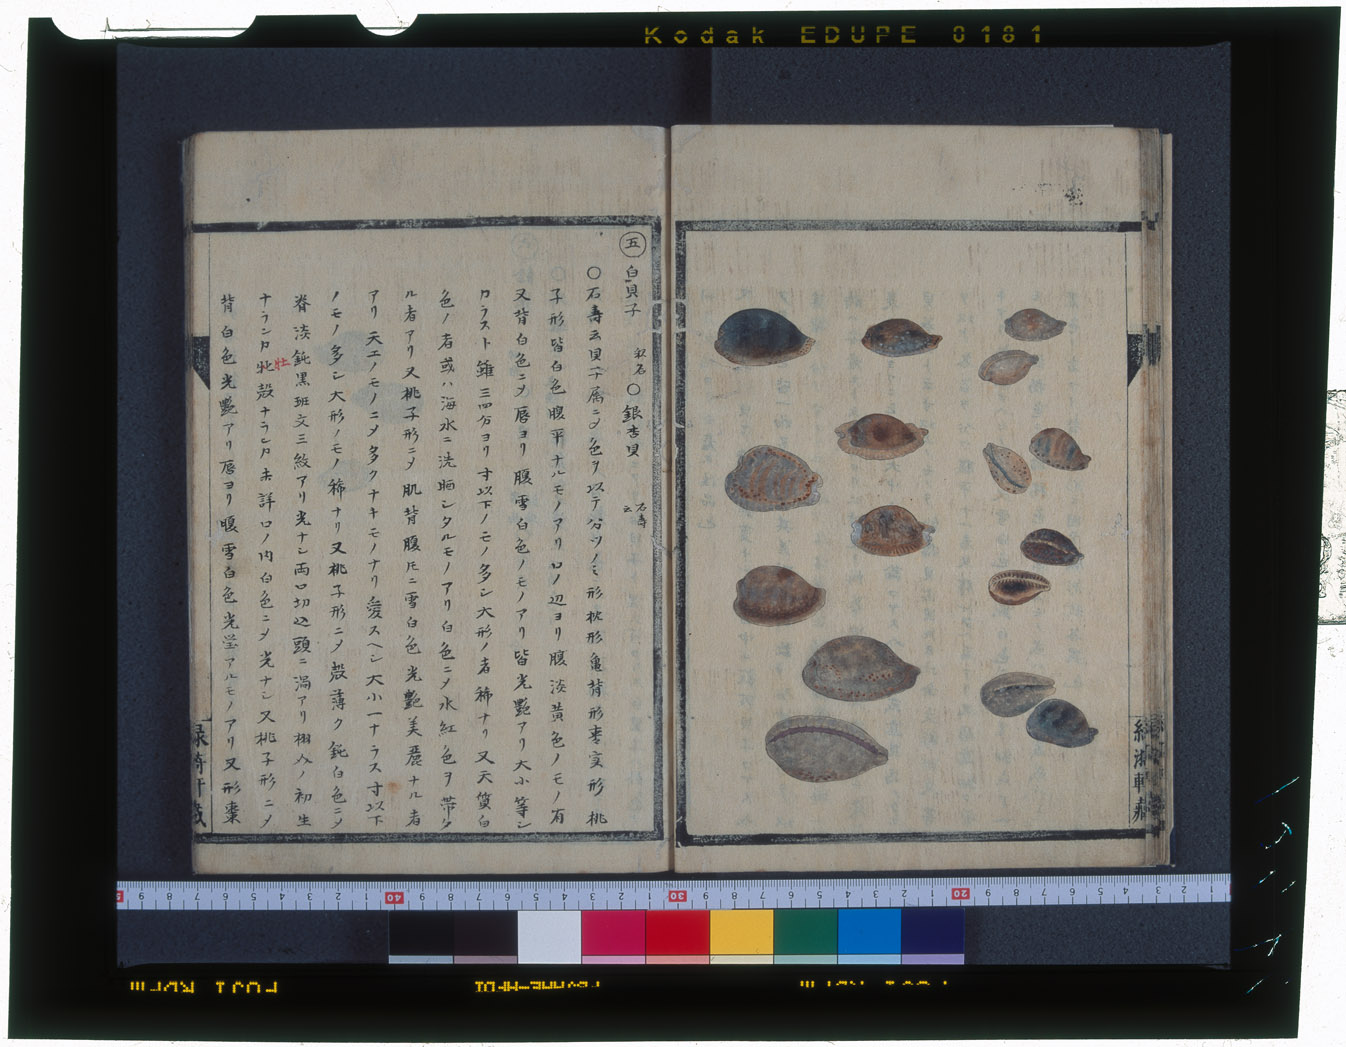 Kodak EDUPE 0181
五 白貝子 和名 〇銀杏貝 石寿云
〇石寿云貝子属ニメ色ヲ以テ分ツノミ形枕形亀背形棗実形桃
子形皆白色腹平ナルモノアリ口ノ辺ヨリ腹淡黄色ノモノ有
又背白色ニメ唇ヨリ腹雪白色ノモノアリ皆光艶アリ大小等シ
カラスト雖三四分ヨリ寸以下ノモノ多シ大形ノ者稀ナリ又天質白
色ノ者或ハ海水ニ洗晒シタルモノアリ白色ニメ水紅色ヲ帯ク
ル者アリ又桃子形ニメ肌背腹圧ニ雪白色光艶美麗ナル者
アリ天工ノモノニメ多クナキモノナリ愛スヘシ大小一ナラス寸以下
ノモノ多シ大形ノモノ稀ナリ又桃子形ニメ殻薄ク鈍白色ニメ
脊淡鈍黒班文三紋アリ光ナシ両口切込頭ニ渦アリ初生
ナランカ牝殻ナランカ未詳口ノ内白色ニメ光ナシ又桃子形ニメ
牡
背白色光艶アリ唇ヨリ腹雪白色光瑩アルモノアリ又形棗